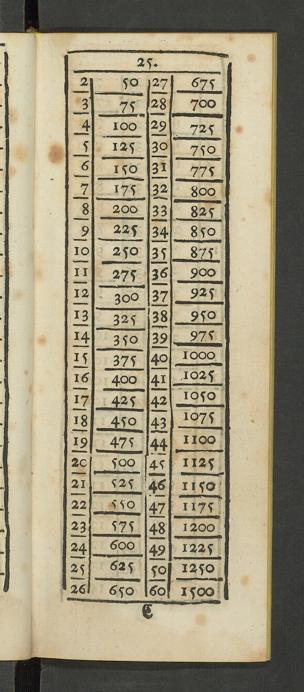 25.
2 50 27 675
3 75 28 700
4 100 29 725
5 125 30 750
6 150 31 775
7 175 32 800
8 200 33 825
9 225 34 850
10 250 35 875
11 275 36 900
12 300 37 925
13 325 38 950
14 350 39 975
15 375 40 1000
16 400 41 1025
17 425 42 1050
18 450 43 1075
19 475 44 1100
20 500 45 1125
21 525 46 1150
22 550 47 1175
23 575 48 1200
24 600 49 1225
25 625 50 1250
26 650 60 1500
C